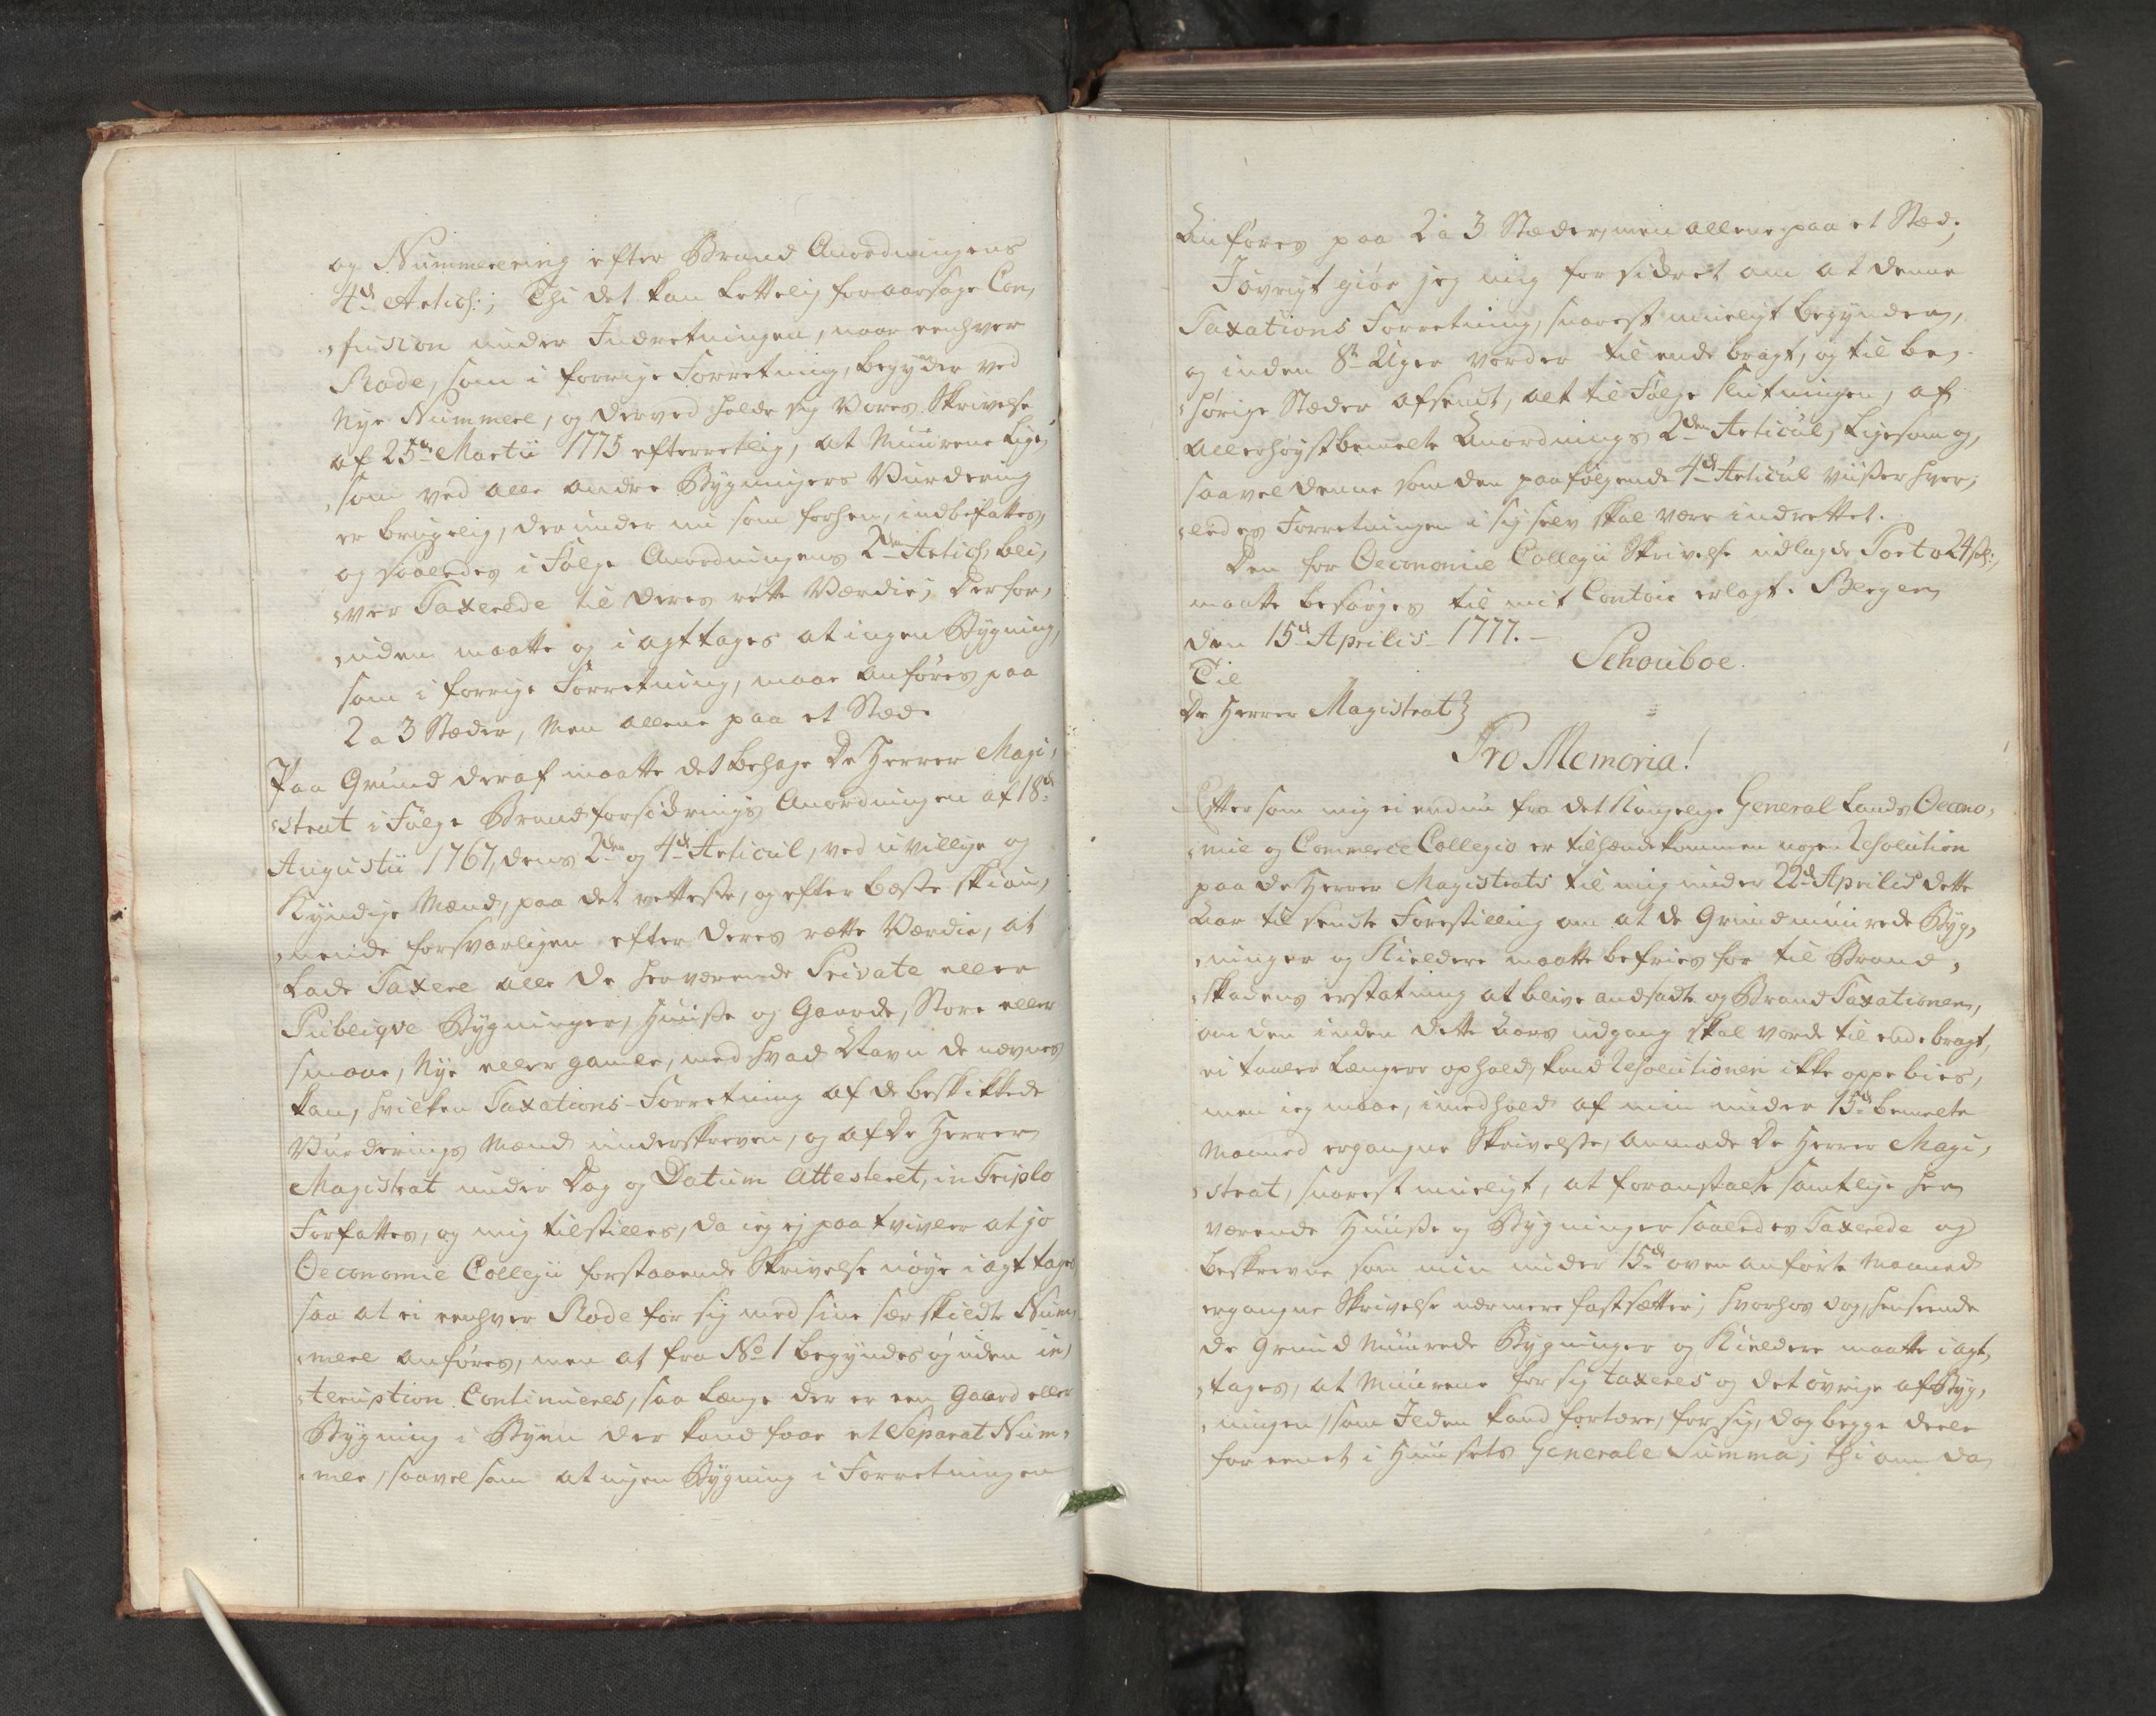 og Nummerering efter Brand Anordningens
4de Articl:; Thi det kan lettelig foraarsage Con,
,fusion under Indretningen, naar eenhver
Rode, som i forrige Forretning, begynder ved
Nye Nummere, og derved holde sig Vores Skrivelse
af 25de Martii 1775 efterretlig, at Muurene lige,
,som ved alle andre Bygningers Vurdering
er brugelig, derunder nu som forhen, indbefattes,
og saaledes i Følge Anordningens 2den Articl, bli,
,ver Taxerede til deres rette Værdie; Derfor,
,uden maatte og i agttages at ingen Bygning,
som i forrige Forretning, maae anføres paa
2 a 3 Stæder, Men allene paa et Stæd.
Paa Grund deraf maatte det behage De Herrer Magi,
,strat i Følge Brandforsickrings Anordningen af 18de
Augustii 1767, dens 2den og 4de Articul, ved uvillige og
Kyndige Mænd, paa det retteste, og efter beste skiøn,
,nende forsvarligen efter deres rette Værdie, at
Lade Taxere alle de herværende Private eller
Publiqve Bygninger, Huuse og Gaarde, Store eller
smaae, Nye eller gamle, med hvad Navn de nævnes
kan, hvilken Taxations-Forretning af de beskikkede
Vurderings Mænd underskreven, og af De Herrer
Magistrat under Dag og Datum Attesteret, in Triplo
Forfattes, og mig tilstilles, da ieg ej paa tvivler at jo
Oeconomie Collegii forstaaende Skrivelse nøye i agttages
saa at ei eenhver Rode for sig med sine sær skildte Num,
,mere anføres, men at fra No 1 begyndes og uden in,
,terruption Continueres, saa længe der er een Gaard eller
Bygning i Byen der kand faae et Separat Num,
,mer, saavelsom at ingen Bygning i Forretningen
Anføres paa 2 a 3 Stæder, men allene paa et Stæd;
Iøvrigt giør jeg mig forsickret om at denne
Taxations Forretning, snarest mueligt begyndes,
og inden 8te Uger vorder til ende bragt, og til be,
,hørige Stæder afsendt, alt til Følge Slutningen, af
Allerhøystbemelte Anordnings 2den Articul, ligesom og,
saavel denne som den paafølgende 4de Articul viiser hvor,
,ledes Forretningen i sig selv skal være indrettet.
Den for Oeconomie Collegii Skrivelse udlagde Porto 24 sk:,
maatte besørges til mit Contoir erlagt. Bergen
den 15de Aprilis 1777.
Schouboe.
Til
De Herrer Magistrat
Pro Memoria!
Efter som mig ei endnu fra det Kongelige General Lands Oecono,
,mie og Commerce Collegio er tilhænde kommen nogen Resolution
paa De Herrer Magistrats til mig under 22de Aprilis dette
Aar til sendte Forestilling om at de Grundmuurede Byg,
,ninger og Kieldere maatte befries for til Brand,
,skadens erstatning at blive andsadte og Brand Taxationen,
om den inden dette Aars udgang skal vorde til ende bragt,
ei taaler længere ophold, kand Resolutionen ikke oppebies,
men ieg maae, i medhold af min under 15de bemelte
Maaned ergangne Skrivelse, Anmode De Herrer Magi,
,strat, snarest mueligt, at foranstalte samtlige her
værende Huuse og Bygninger saaledes Taxerede og
beskrevne som min under 15de oven anførte Maaned
ergangne Skrivelse nærmere fastsætter; hvorhos dog, henseende
de Grund Muurede Bygninger og Kieldere maatte i agt,
,tages, at Muurene for sig taxeres og det øvrige af Byg,
,ningen, som Ilden kand fortære, for sig, dog begge deele
forenet i Huusets Generale Summa; thi om da